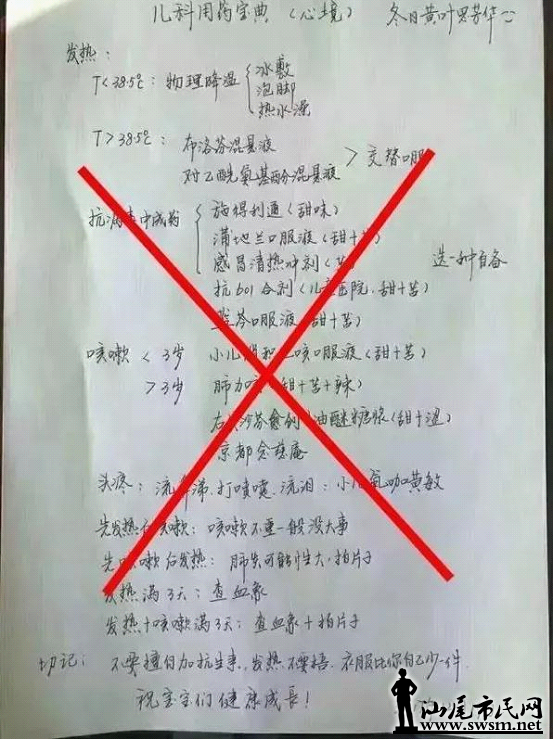 儿科用药宝典（心境） 冬日黄叶
发热：
T<38.5℃：物理降温 冰敷
泡脚
热水澡
T>38.5℃：布洛芬混悬液
对乙酰氨基酚混悬液 > 交替口服
抗病毒中成药 施得利通（甜味）
蒲地兰口服液（甜+苦）
感冒清热冲剂（苦） 选一种自备
抗601合剂（儿童医院.甜+苦）
芩口服液（甜+苦）
咳嗽 < 3岁 小儿 咳口服液（甜+苦）
>3岁 肺力咳（甜+苦+辣）
右 沙芬愈创 油醚糖浆（甜+涩）
京都念慈庵
头疼：流鼻涕.打喷嚏.流泪：小儿氨咖黄敏
先发热后咳嗽：咳嗽不重一般没大事
先咳嗽后发热：肺炎可能性大.拍片子
发热满3天：查血象
发热+咳嗽满3天：查血象+拍片子
切记：不要擅自加抗生素，发热不要捂.衣服比你自己少一件
祝宝宝们健康成长！
汕尾市民网
www.swsm.net